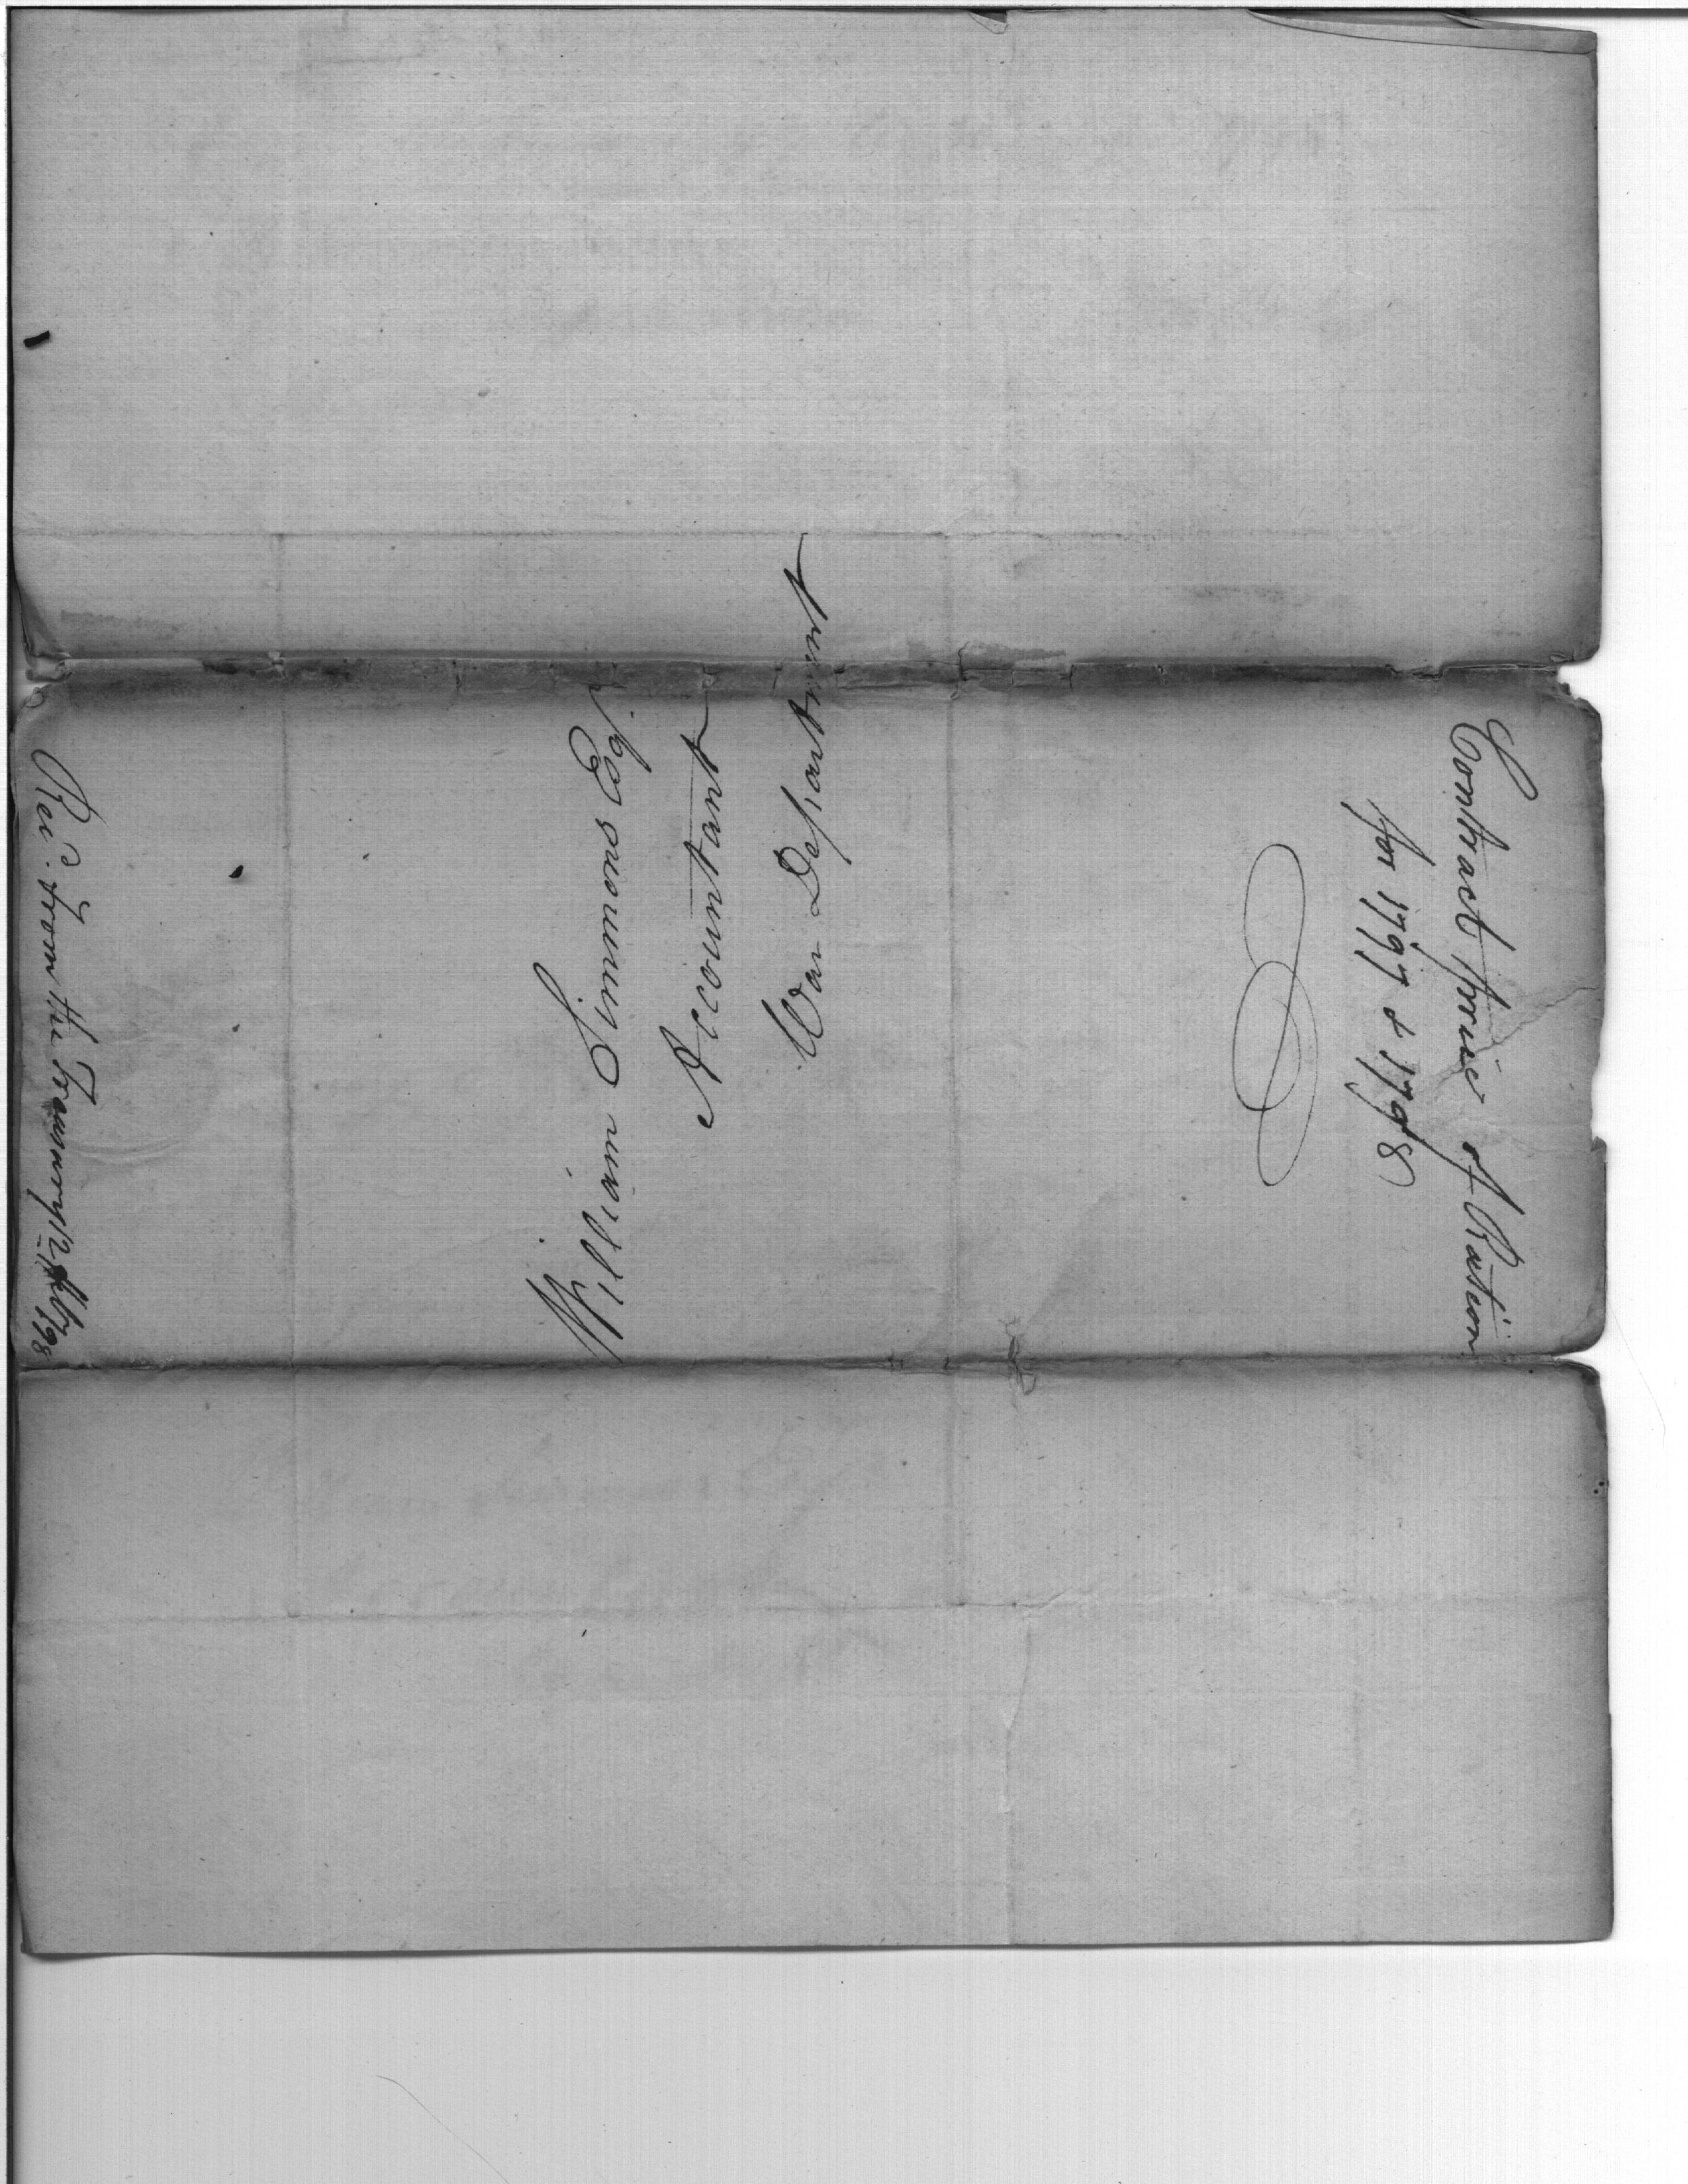 Contract price of Ration
for 1797 & 1798
William Simmons Esqr.
Accountant
War Department
Recd. from the Treasury 12 Feby 98